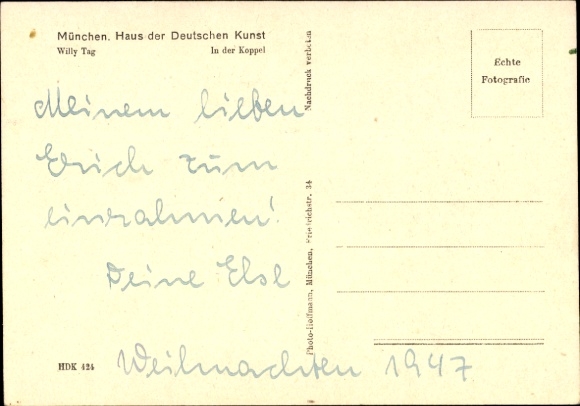 München, Haus der Deutschen Kunst
Willy Tag In der Koppel
Nachdruck verboten
Echte
Fotografie
Meinem lieben
Erich zum
einrahmen!
Deine Elsl
Weihnachten 1947
HDK 424
Photo-Hoffmann, München, Friedrichstr. 34